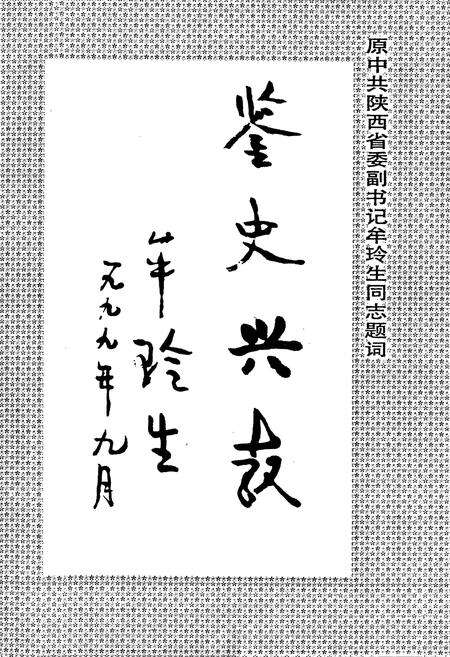 原中共陕西省委副书记牟玲生同志题词
鉴史兴教
牟玲生
一九九九年九月